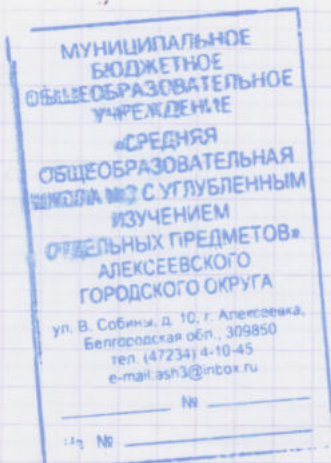 МУНИЦИПАЛЬНОЕ
БЮДЖЕТНОЕ
ОБЩЕОБРАЗОВАТЕЛЬНОЕ
УЧРЕЖДЕНИЕ
«СРЕДНЯЯ
ОБЩЕОБРАЗОВАТЕЛЬНАЯ
ШКОЛА №3 С УГЛУБЛЕННЫМ
ИЗУЧЕНИЕМ
ОТДЕЛЬНЫХ ПРЕДМЕТОВ»
АЛЕКСЕЕВСКОГО
ГОРОДСКОГО ОКРУГА
ул. В. Собины, д. 10, г. Алексеевка,
Белгородская обл., 309850
тел. (47234) 4-10-45
e-mail:ash3@inbox.ru
№
№